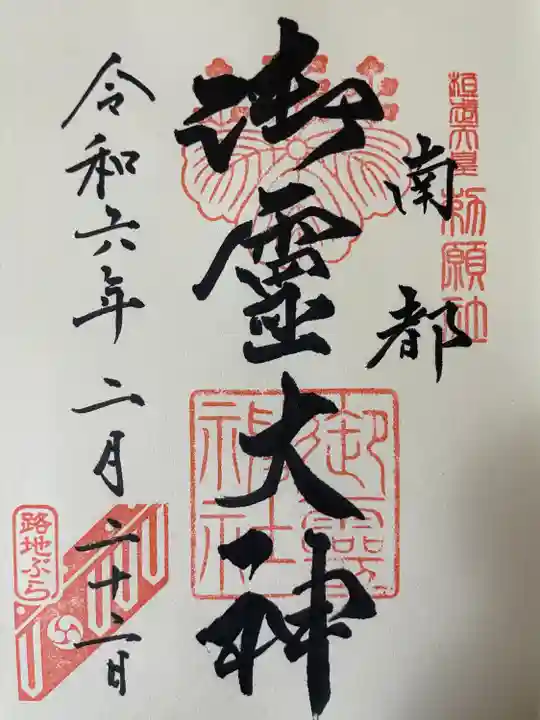 桓武天皇
勅願社
南都
御靈大神
御靈神社
令和六年二月二十二日
路地ぶら